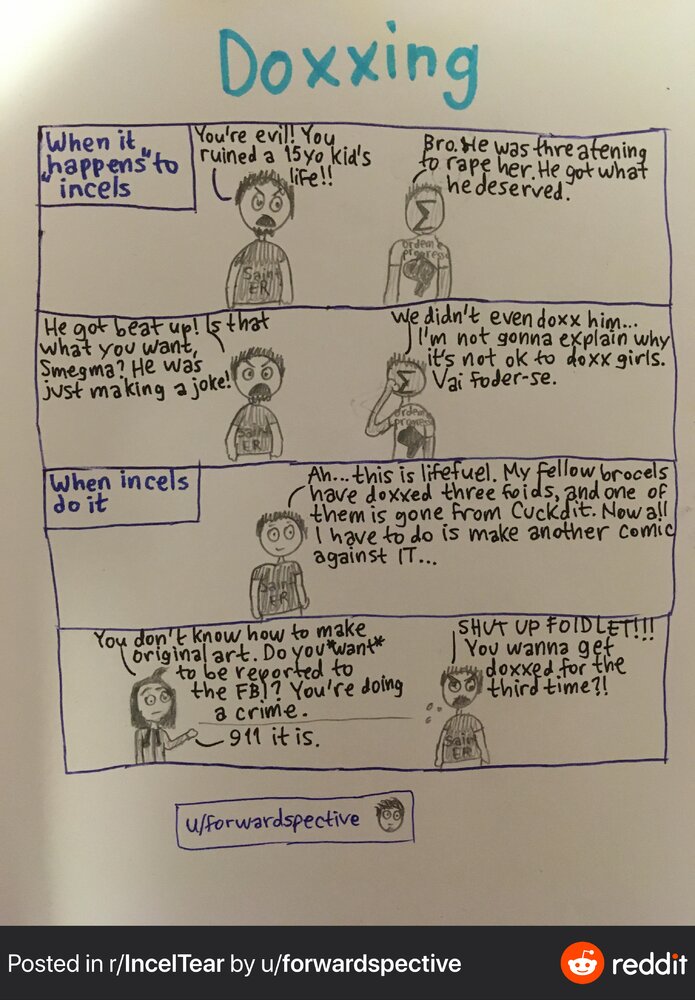 Doxxing
When it
"happens" to
incels
You're evil! You
ruined a 15yo kid's
life!!
Bro. He was threatening
to rape her. He got what
he deserved.
Σ
Saint
ER
Ordem e
progresso
He got beat up! Is that
what you want,
Smegma? He was
just making a joke!
We didn't even doxx him...
I'm not gonna explain why
it's not ok to doxx girls.
Vai foder-se.
Σ
Saint
ER
Ordem e
progresso
When incels
do it
Ah...this is lifefuel. My fellow brocels
have doxxed three foids, and one of
them is gone from Cuckdit. Now all
I have to do is make another comic
against IT...
Saint
ER
You don't know how to make
original art. Do you *want*
to be reported to
the FBI? You're doing
a crime.
911 it is.
SHUT UP FOIDLET!!!
You wanna get
doxxed for the
third time?!
Saint
ER
u/forwardspective
Posted in r/IncelTear by u/forwardspective
reddit